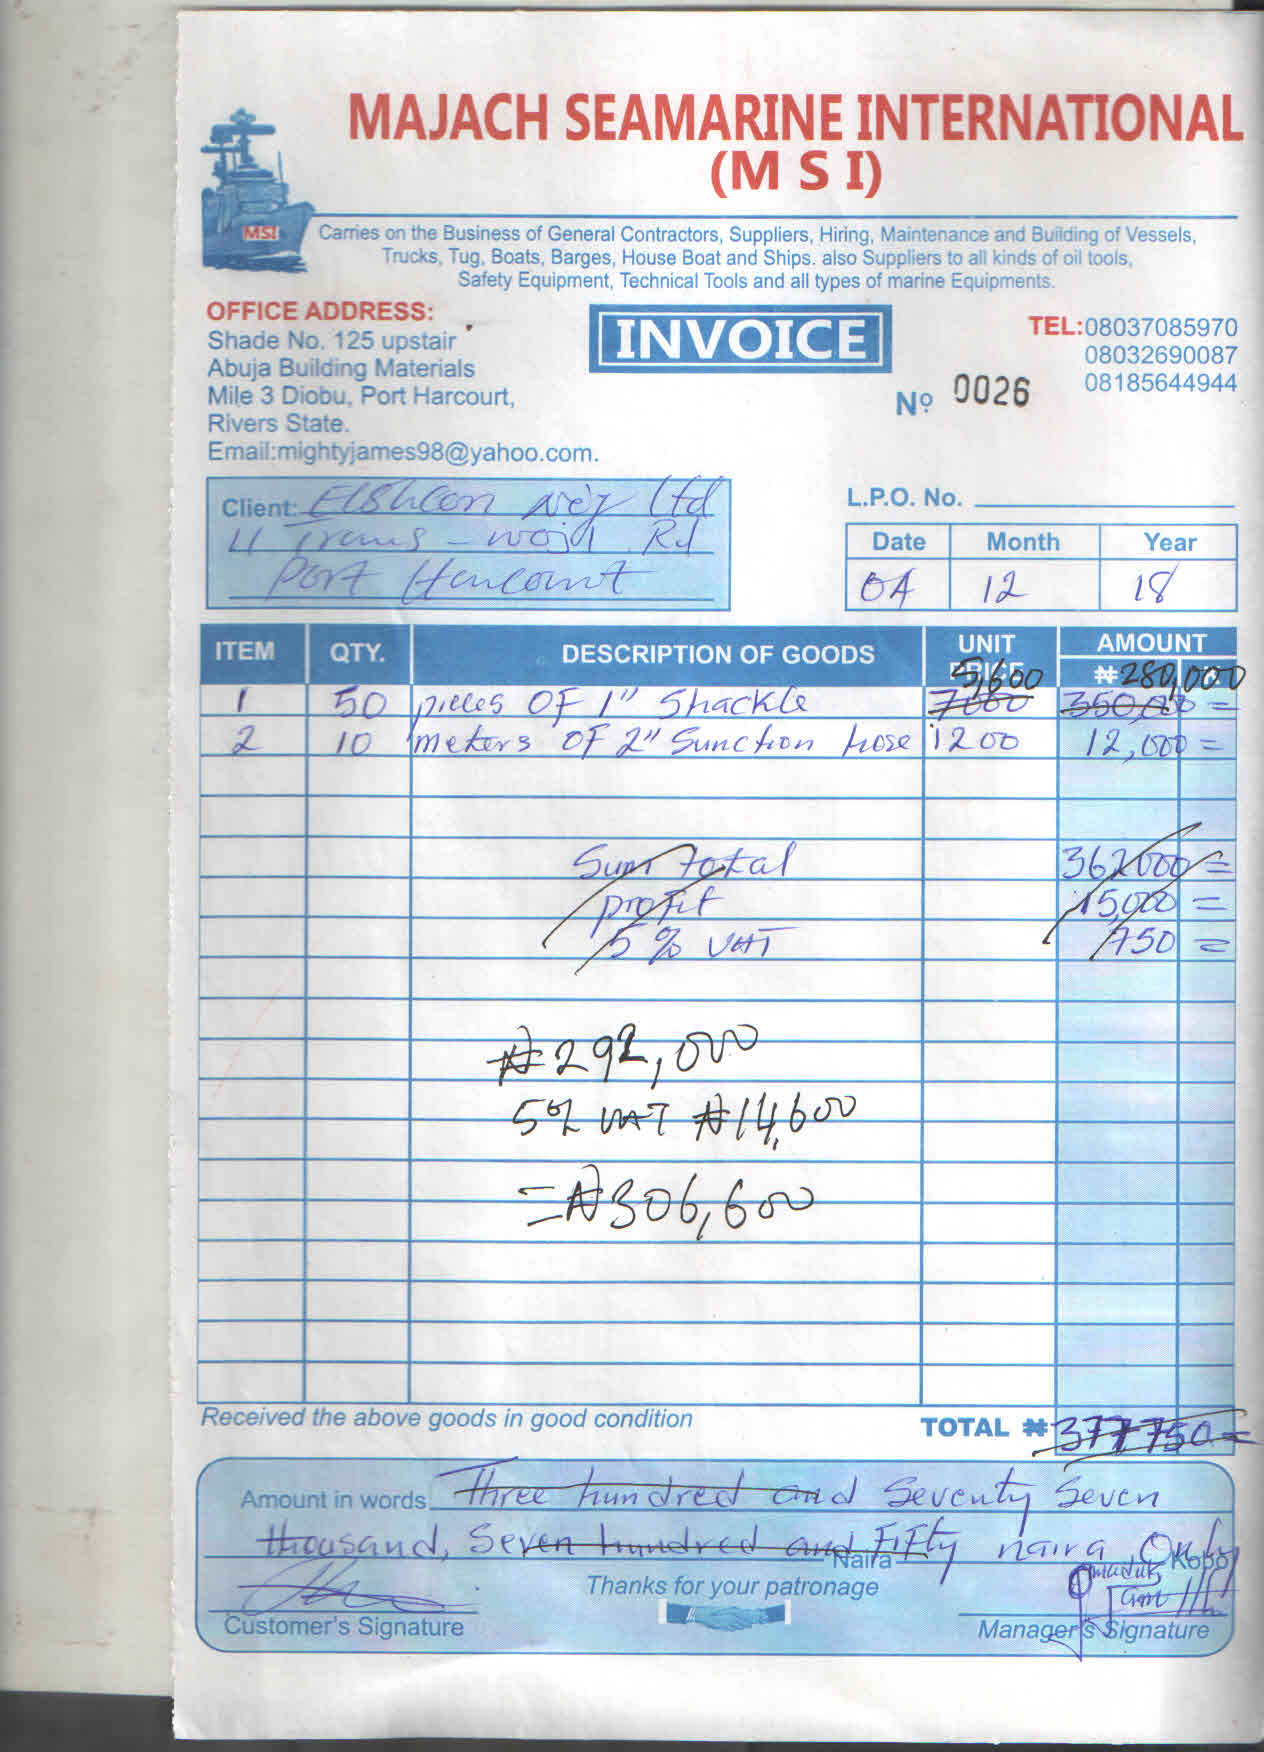 MAJACH SEAMARINE INTERNATIONAL
(M S I)
MSI
Carries on the Business of General Contractors, Suppliers, Hiring, Maintenance and Building of Vessels,
Trucks, Tug, Boats, Barges, House Boat and Ships. also Suppliers to all kinds of oil tools,
Safety Equipment, Technical Tools and all types of marine Equipments.
OFFICE ADDRESS:
Shade No. 125 upstair
Abuja Building Materials
Mile 3 Diobu, Port Harcourt,
Rivers State.
Email:mightyjames98@yahoo.com.
INVOICE
Nº 0026
TEL:08037085970
08032690087
08185644944
Client: Elshcon Nig Ltd
11 Trans - Rd
Port Harcourt
L.P.O. No.
Date Month Year
04 12 18
ITEM QTY. DESCRIPTION OF GOODS UNIT PRICE AMOUNT
₦ 5,600 280,000
1 50 pieces OF 1" Shackle 7000 350,000 =
2 10 meters OF 2" Sunction hose 1200 12,000 =
Sum total 362000 =
profit 15,000 =
5% VAT 750 =
₦292,000
5% VAT ₦14,600
= ₦306,600
Received the above goods in good condition
TOTAL ₦ 377750 =
Amount in words Three hundred and Seventy Seven
thousand, Seven hundred and Fifty naira Only
Naira Kobo
Thanks for your patronage
Customer's Signature
Manager's Signature